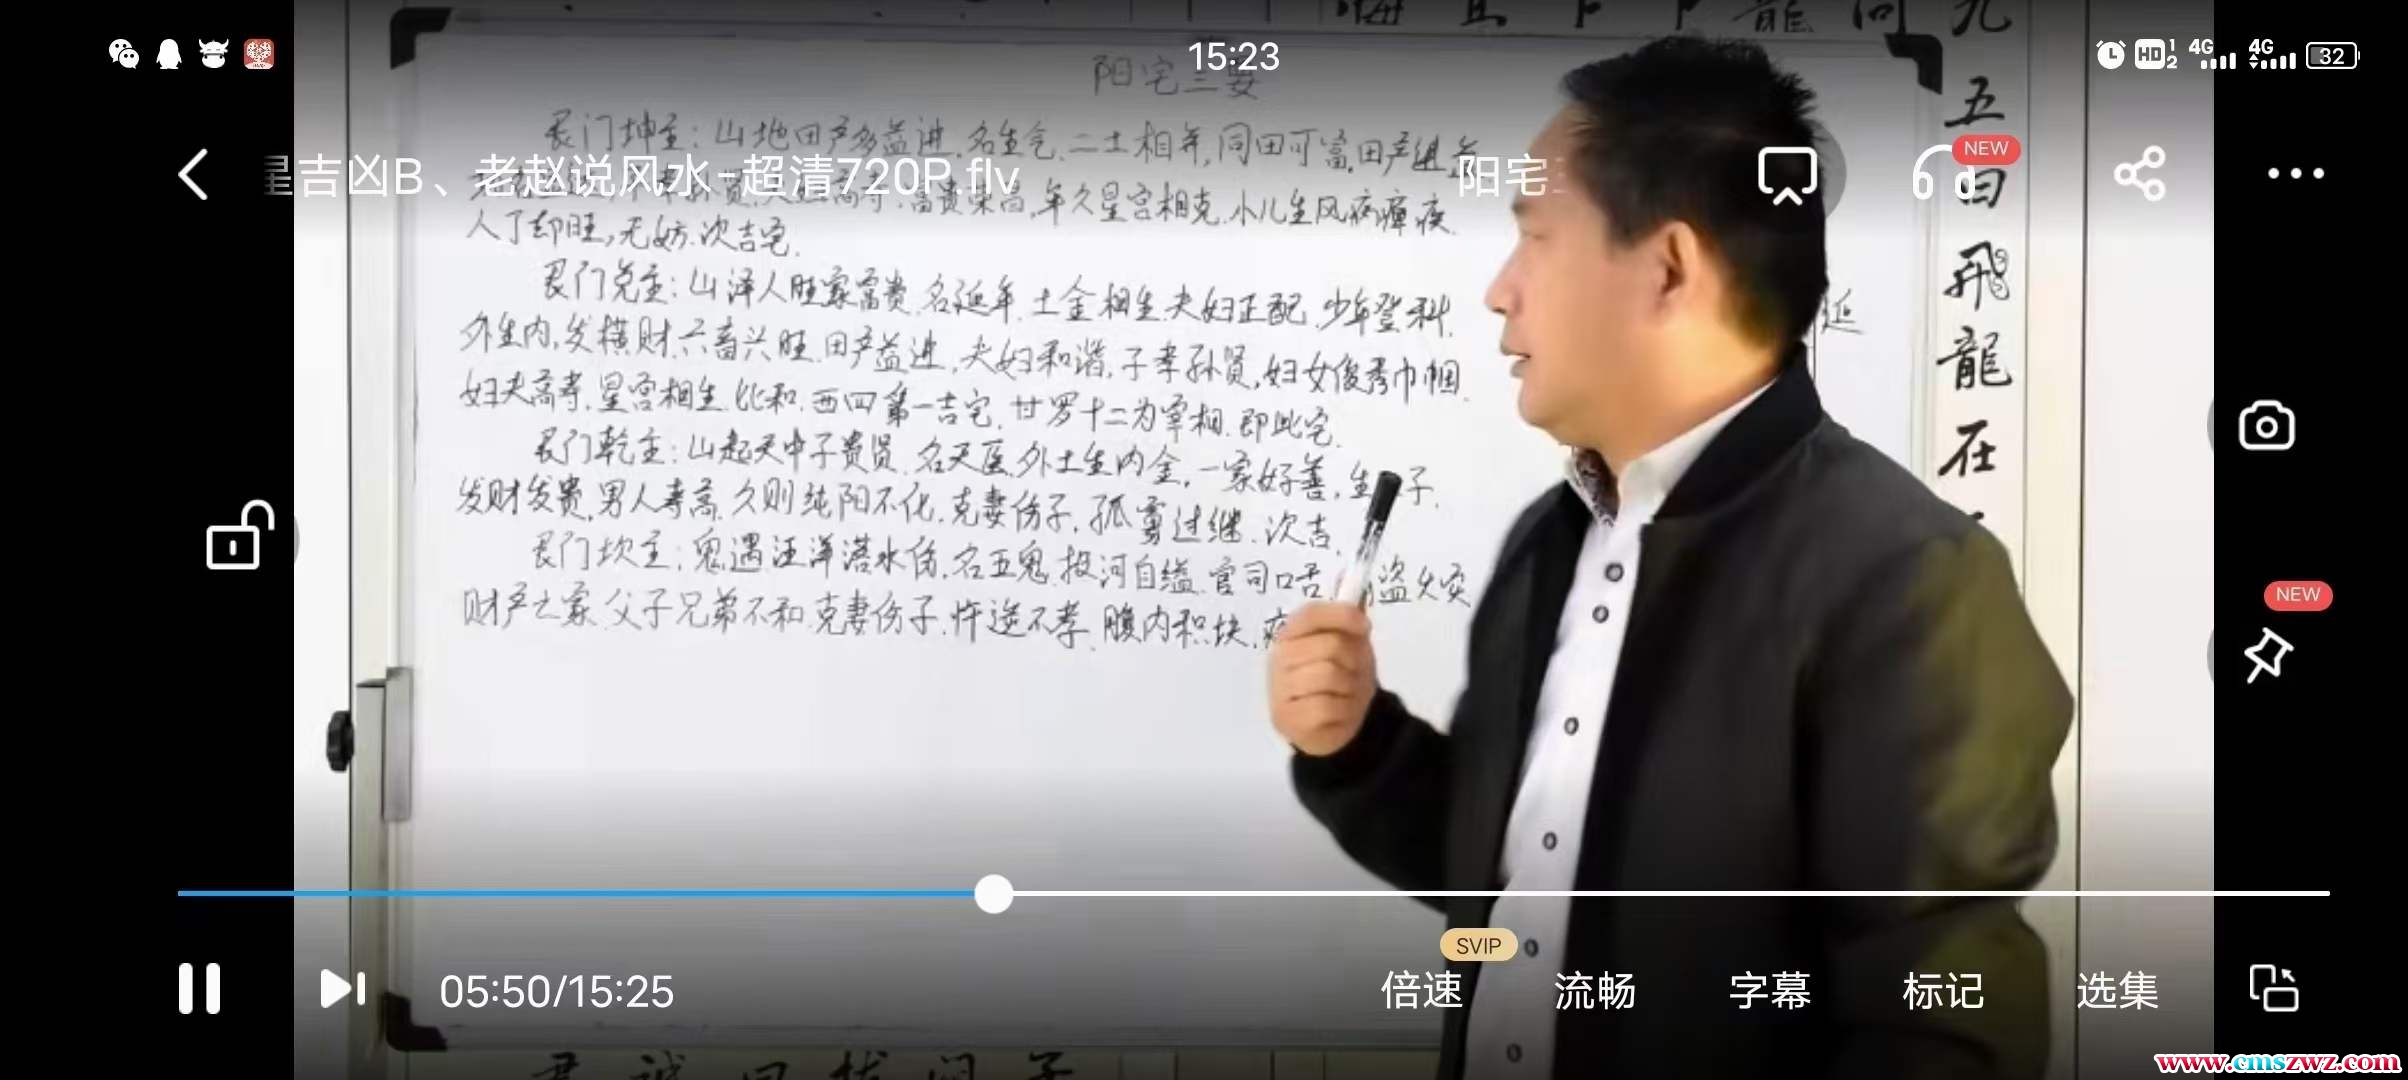 15:23
HD 1 2 4G 4G 32
星吉凶B、老赵说风水-超清720P.flv
阳宅
NEW
阳宅三要
艮门坤主:山地田产多益进.名生气.二土相并,同田可富.田产进益
富贵荣昌,年久星宫相克.小儿生风病瘫疾.
人丁却旺,无妨.次吉宅.
艮门兑主:山泽人旺家富贵.名延年.土金相生.夫妇正配.少年登科.
外生内,发横财.六畜兴旺.田产益进,夫妇和谐,子孝孙贤,妇女俊秀巾帼.
妇夫高寿.星宫相生.比和.西四第一吉宅.甘罗十二为宰相.即此宅.
艮门乾主:山起天中子贵贤.名天医.外土生内金,一家好善,生 子.
发财发贵.男人寿高.久则纯阳不化.克妻伤子,孤寡过继.次吉.
艮门坎主:鬼遇汪洋落水伤.名五鬼.投河自缢.官司口舌. 盗火灾
财产亡家.父子兄弟不和.克妻伤子.忤逆不孝.腹内积块.
延
五
曰
飛
龍
在
NEW
05:50/15:25
SVIP
倍速
流畅
字幕
标记
选集
www.cmszwz.com